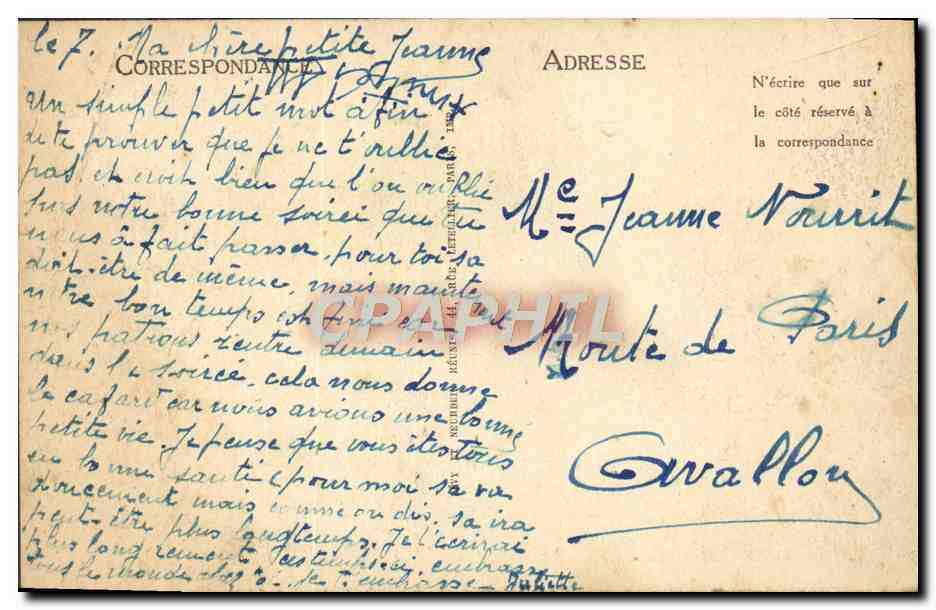 le 7. Ma chère petite Jeanne
CORRESPONDANCE
Un simple petit mot à fin
de te prouver que je ne t'oublie
pas, et croit bien que l'on oublie
pas notre bonne soirei que tu
nous à fait passer, pour toi sa
doit-être de même, mais mainte
notre bon temps est fini car
nos patrons rentre demain
dans la soirée, cela nous donne
le cafard car nous avions une bonne
petite vie. Je pense que vous êtes tous
en bonne santé, pour moi sa va
doucement mais comme on dis, sa ira
peut-être plus longtemps. Je t'écrirai
plus longuement ces temps-ci, embrasse
tous le monde chez
Je t'embrasse Juliette
LEVY ET NEURDEIN RÉUNIS, 44, RUE LETELLIER, PARIS, IMP.
ADRESSE
N'écrire que sur
le côté réservé à
la correspondance
Me Jeanne Nourrit
Route de Paris
Avallon
CPAPHIL